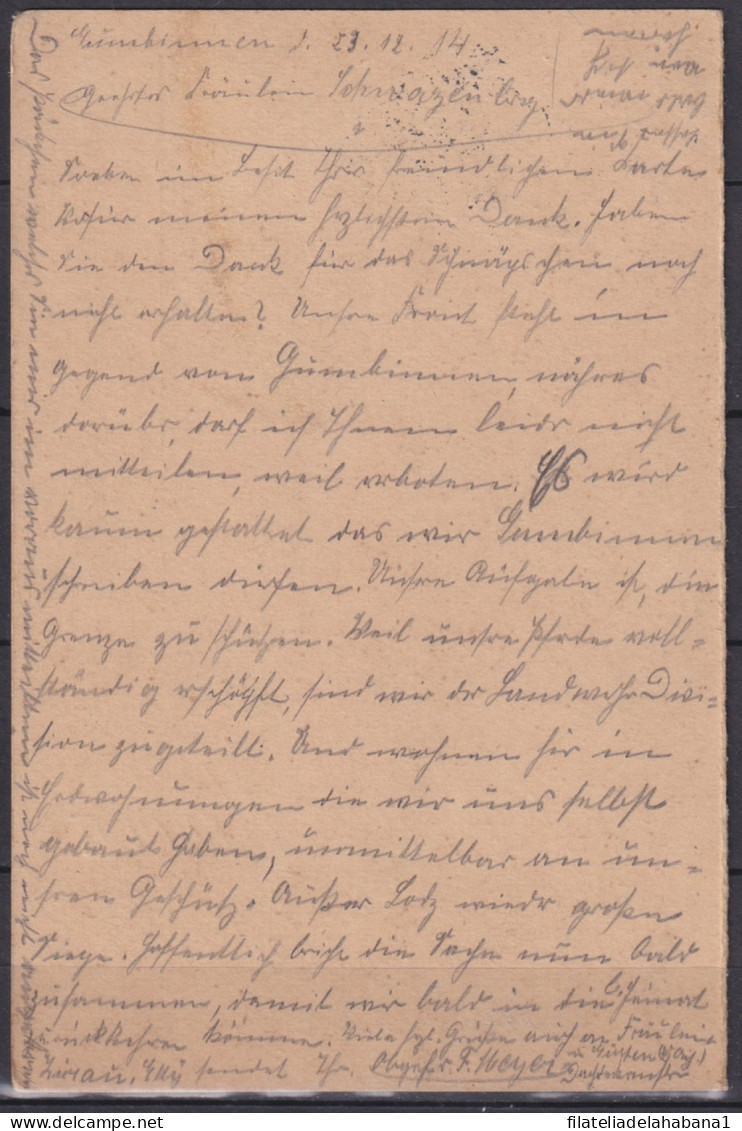 Gumbinnen d. 23.12.14
Geehrtes Fräulein Schwazenberg
Soeben im Besitz Ihrer freundlichen Karte
wofür meinen herzlichsten Dank. Haben
Sie den Dank für das Schnäpschen noch
nicht erhalten? Unsre Front steht in
Gegend von Gumbinnen, nähres
darüber, darf ich Ihnen leider nicht
mitteilen, weil verboten. Es wird
kaum gestattet das wir Gumbinnen
schreiben dürfen. Unsre Aufgabe ist, die
Grenze zu schützen. Weil unsre Pferde voll-
ständig erschöpft, sind wir der Landwehr Divi-
sion zugeteilt. Und wohnen hir in
Erdwohnungen die wir uns selbst
gebaut haben, unmittelbar an un-
sren Geschütz. Außer Lodz wieder große
Siege. Hoffentlich bricht die Sache nun bald
zusammen, damit wir bald in die Heimat
zurückkehren können. Viele hzl. Grüße auch an Fräulein
sendet Ihr Obgefr. F. Meyer
Das Päckchen welches Sie mir im
ich noch nicht
filateliadelahabana1